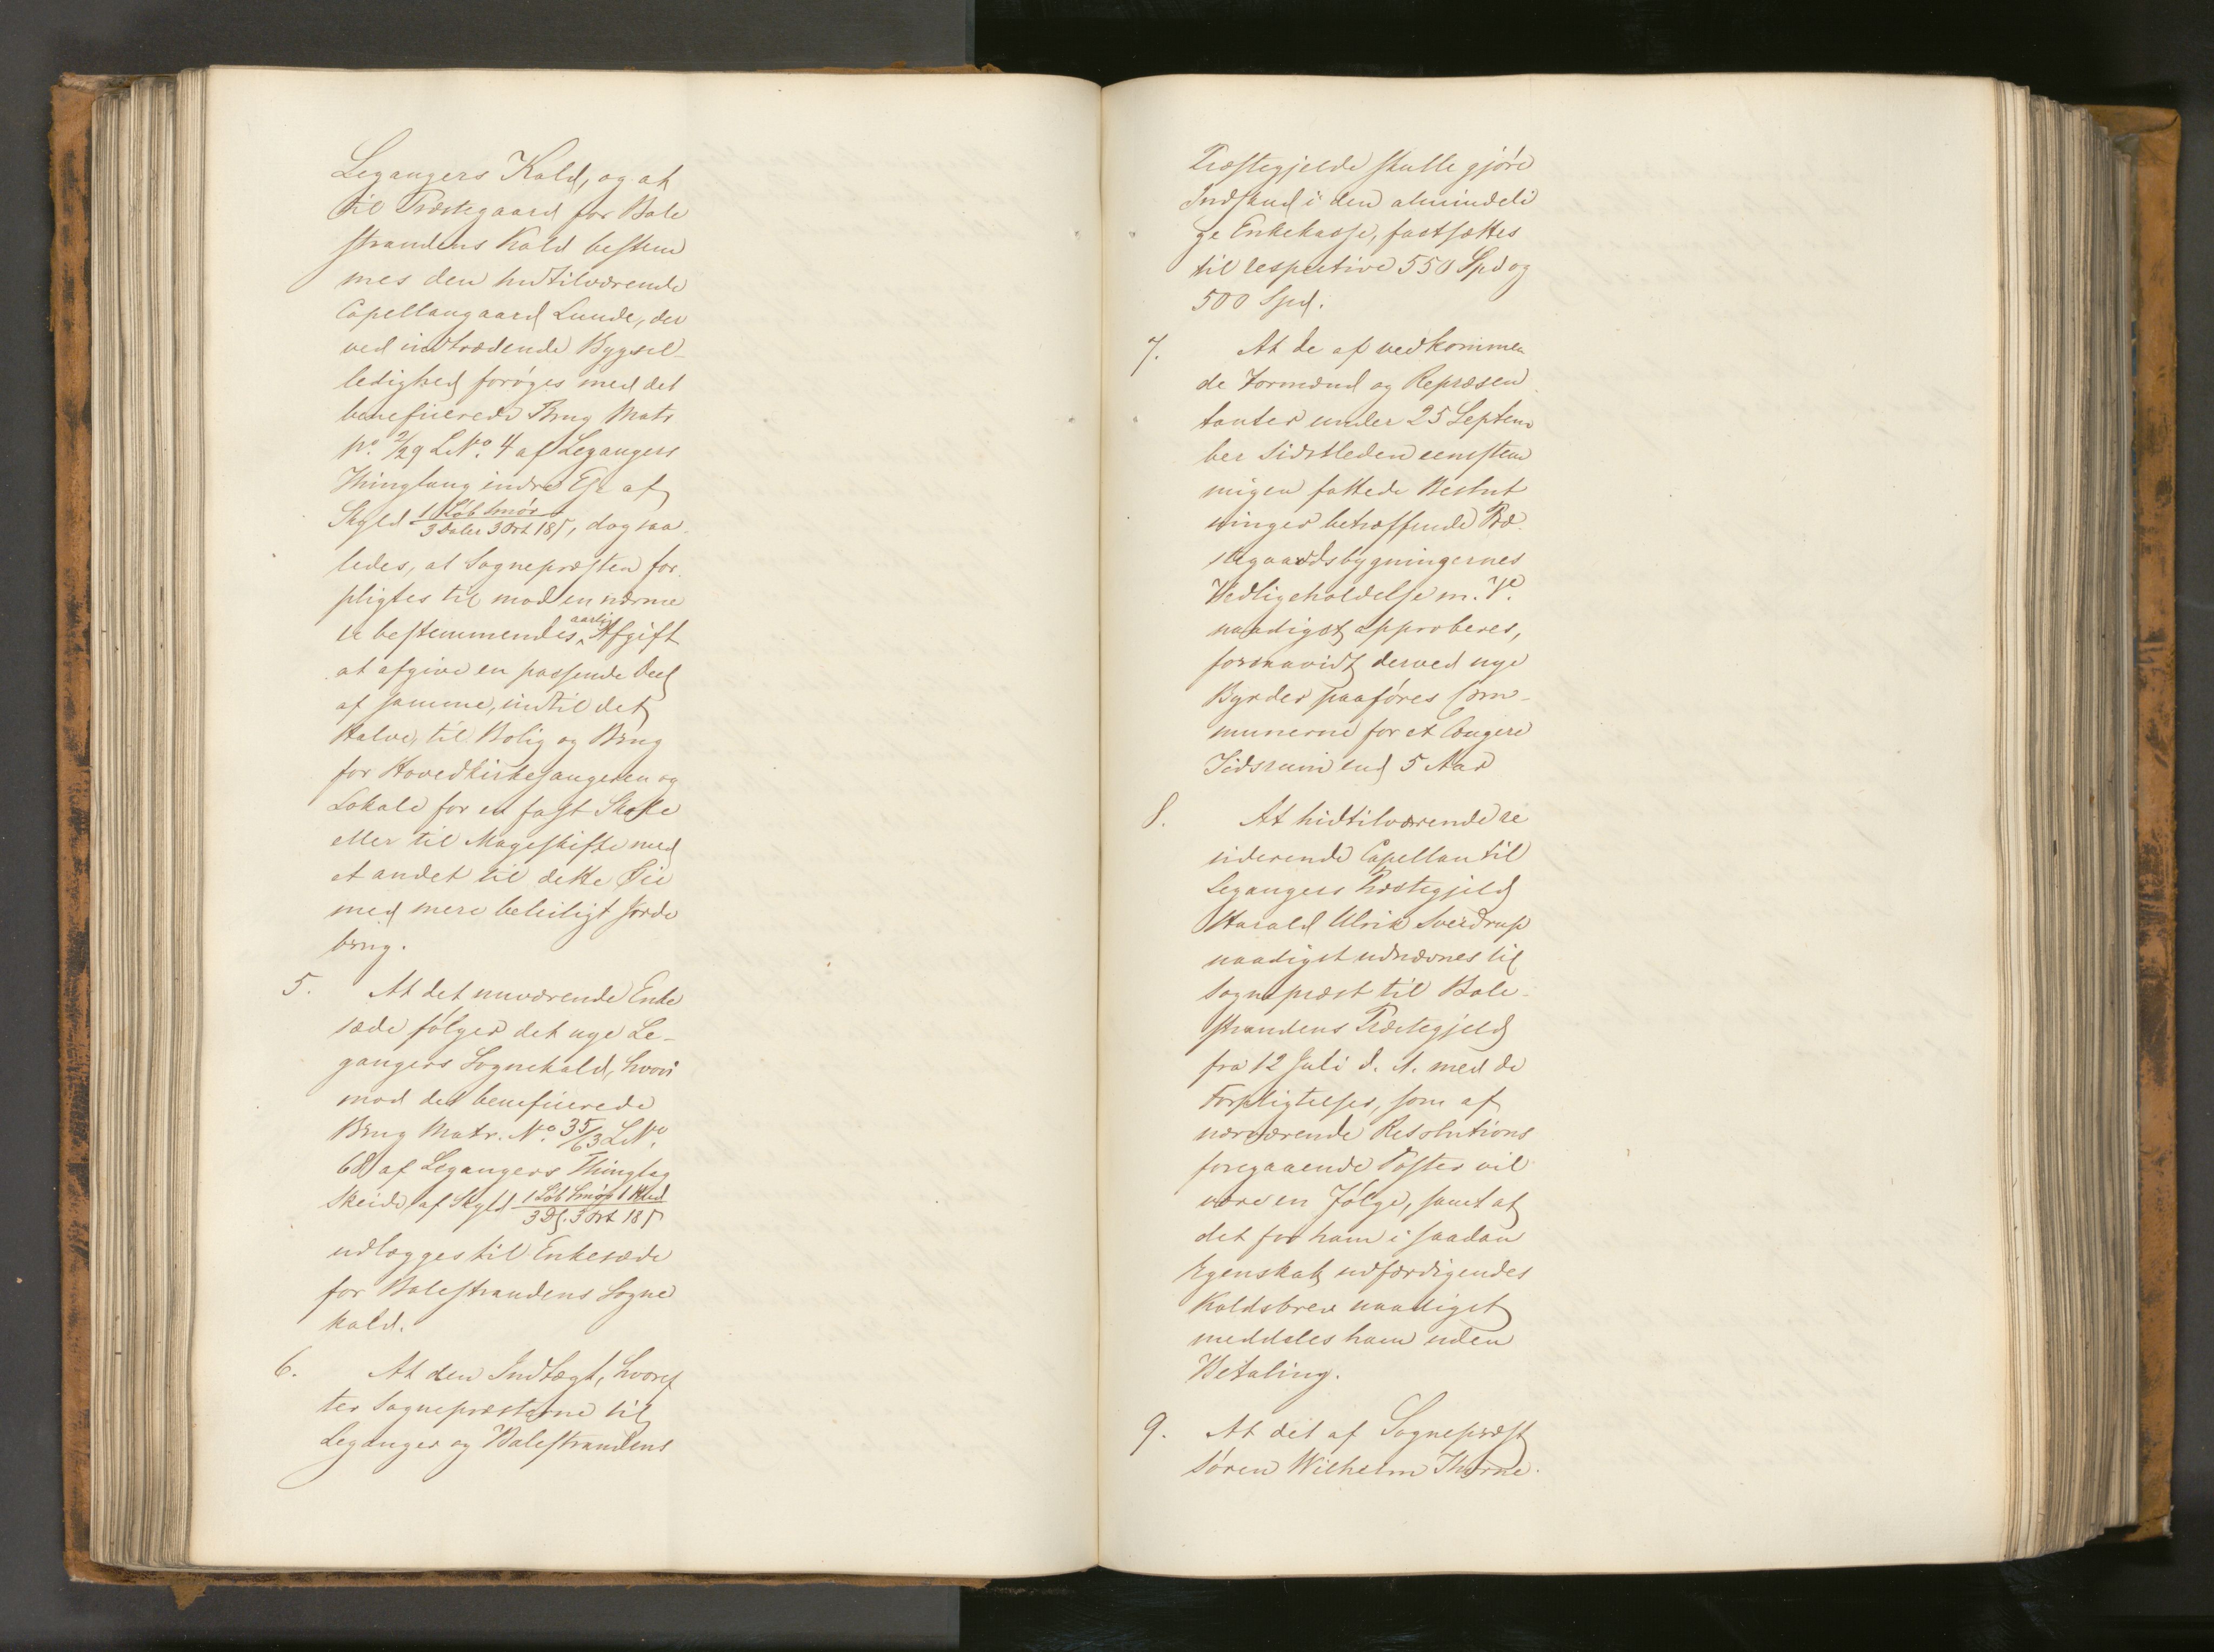 Legangers Kald, og at
til Præstegaard for Bale
strandens Kald bestem
mes den hidtilværende
Capellangaard Lunde, der
ved indtrædende Bygsel-
ledighed forøges med det
beneficerede Brug Matr
No. 2/29 L.No. 4 af Legangers
Thinglaug indre Eje af
Skyld 1 Løb Smør / 3 Daler 3 Ort 18 ẞ, dog saa
ledes, at Sognepræsten for
pligtes til mod en nærme
re bestemmendes aarlig Afgift
at afgive en passende Deel
af samme, indtil det
Halve, til Bolig og Brug
for Hovedkirkesangeren og
Lokale for en fast Skole
eller til Mageskifte med
et andet til dette Øie
med mere beleiligt Jorde
brug.
5. At det nuværende Enke
sæde følger det nye Le-
gangers Sognekald, hvori
mod det beneficerede
Brug Matr. No. 35/63 L.No.
68 af Legangers Thinglag
Skeide, af Skyld 1 Løb Smør 1 Hud / 3 Dl. 3 Ort 18 ẞ
udlægges til Enkesæde
for Balestrandens Sogne
kald.
6. At den Indtægt, hvoref
ter Sognepræsterne til
Leganger og Balestrandens
Præstegjelde skulle gjøre
Indskud i den almindeli
ge Enkekasse, fastsættes
til respective 550 Spd og
500 Spd.
7. At de af vedkommen
de Formænd og Repræsen
tanter under 25 Septem
ber sidstleden eenstem
migen fattede Beslut
ninger betræffende Præ
stegaardsbygningernes
Vedligeholdelse m. V.
naadigst approberes,
forsaavidt derved nye
Byrder paaføres Com-
munerne for et længere
Tidsrum end 5 Aar
8. At hidtilværende re
siderende Capellan til
Legangers Præstegjeld
Harald Ulrik Sverdrup
naadigst udnævnes til
Sognepræst til Bale-
strandens Præstegjeld
fra 12 Juli d. A. med de
Forpligtelser, som af
nærværende Resolutions
foregaaende Poster vil
være en Følge, samt at
det for ham i saadan
Egenskab udfærdigendes
Kaldsbrev naadigst
meddeles ham uden
Betaling.
9. At det af Sognepræst
Søren Wilhelm Thorne